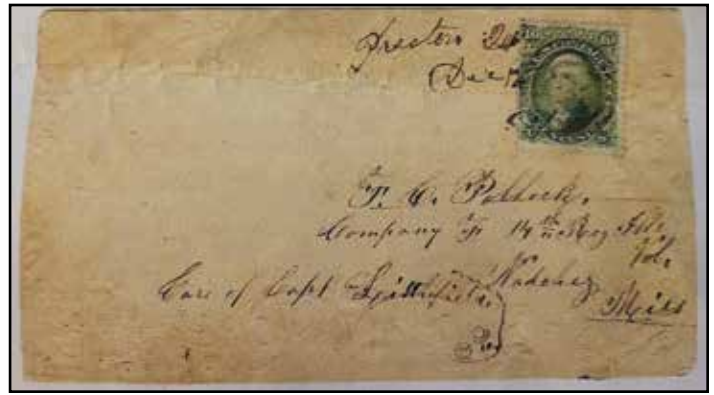 Dec 12
F. C. Pollock,
Company F 14th Reg Ill.
Vol,
Care of Capt Littlefield. Natchez
Miss